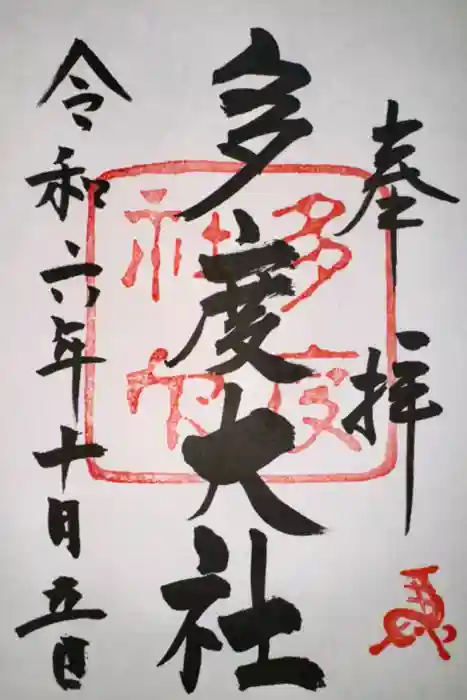 奉拝
多度大社
令和六年十月五日
多度
社印